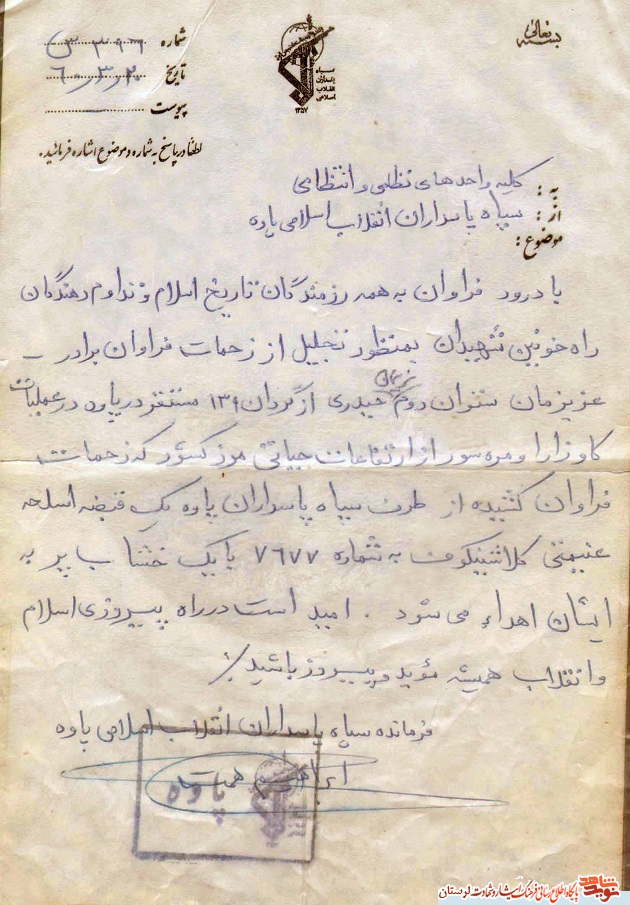 بسمه تعالی
سپاه پاسداران انقلاب اسلامی
۱۳۵۷
شماره
تاریخ ۶۰٫۳٫۲۰
پیوست
لطفاً در پاسخ به شماره و موضوع اشاره فرمائید.
به : کلیه واحدهای نظامی و انتظامی
از : سپاه پاسداران انقلاب اسلامی پاوه
موضوع :
با درود فراوان به همه رزمندگان تاریخ اسلام و تداوم دهندگان
راه خونین شهیدان بمنظور تجلیل از زحمات فراوان برادر –
عزیزمان ستوان دوم حیدری از گردان ۱۳۹ مستقر در پاوه در عملیات
کاوزارا و مره سور از ارتفاعات حیاتی مرز کشور که زحمات
فراوان کشیده از طرف سپاه پاسداران پاوه یک قبضه اسلحه
غنیمتی کلاشینکوف به شماره ۷۶۷۷ با یک خشاب پر به
ایشان اهداء می شود . امید است در راه پیروزی اسلام
و انقلاب همیشه مؤید و پیروز باشید./
فرمانده سپاه پاسداران انقلاب اسلامی پاوه
ابراهیم همت
پاوه
نوید شاهد
پایگاه اطلاع رسانی فرهنگ ایثار و شهادت لرستان